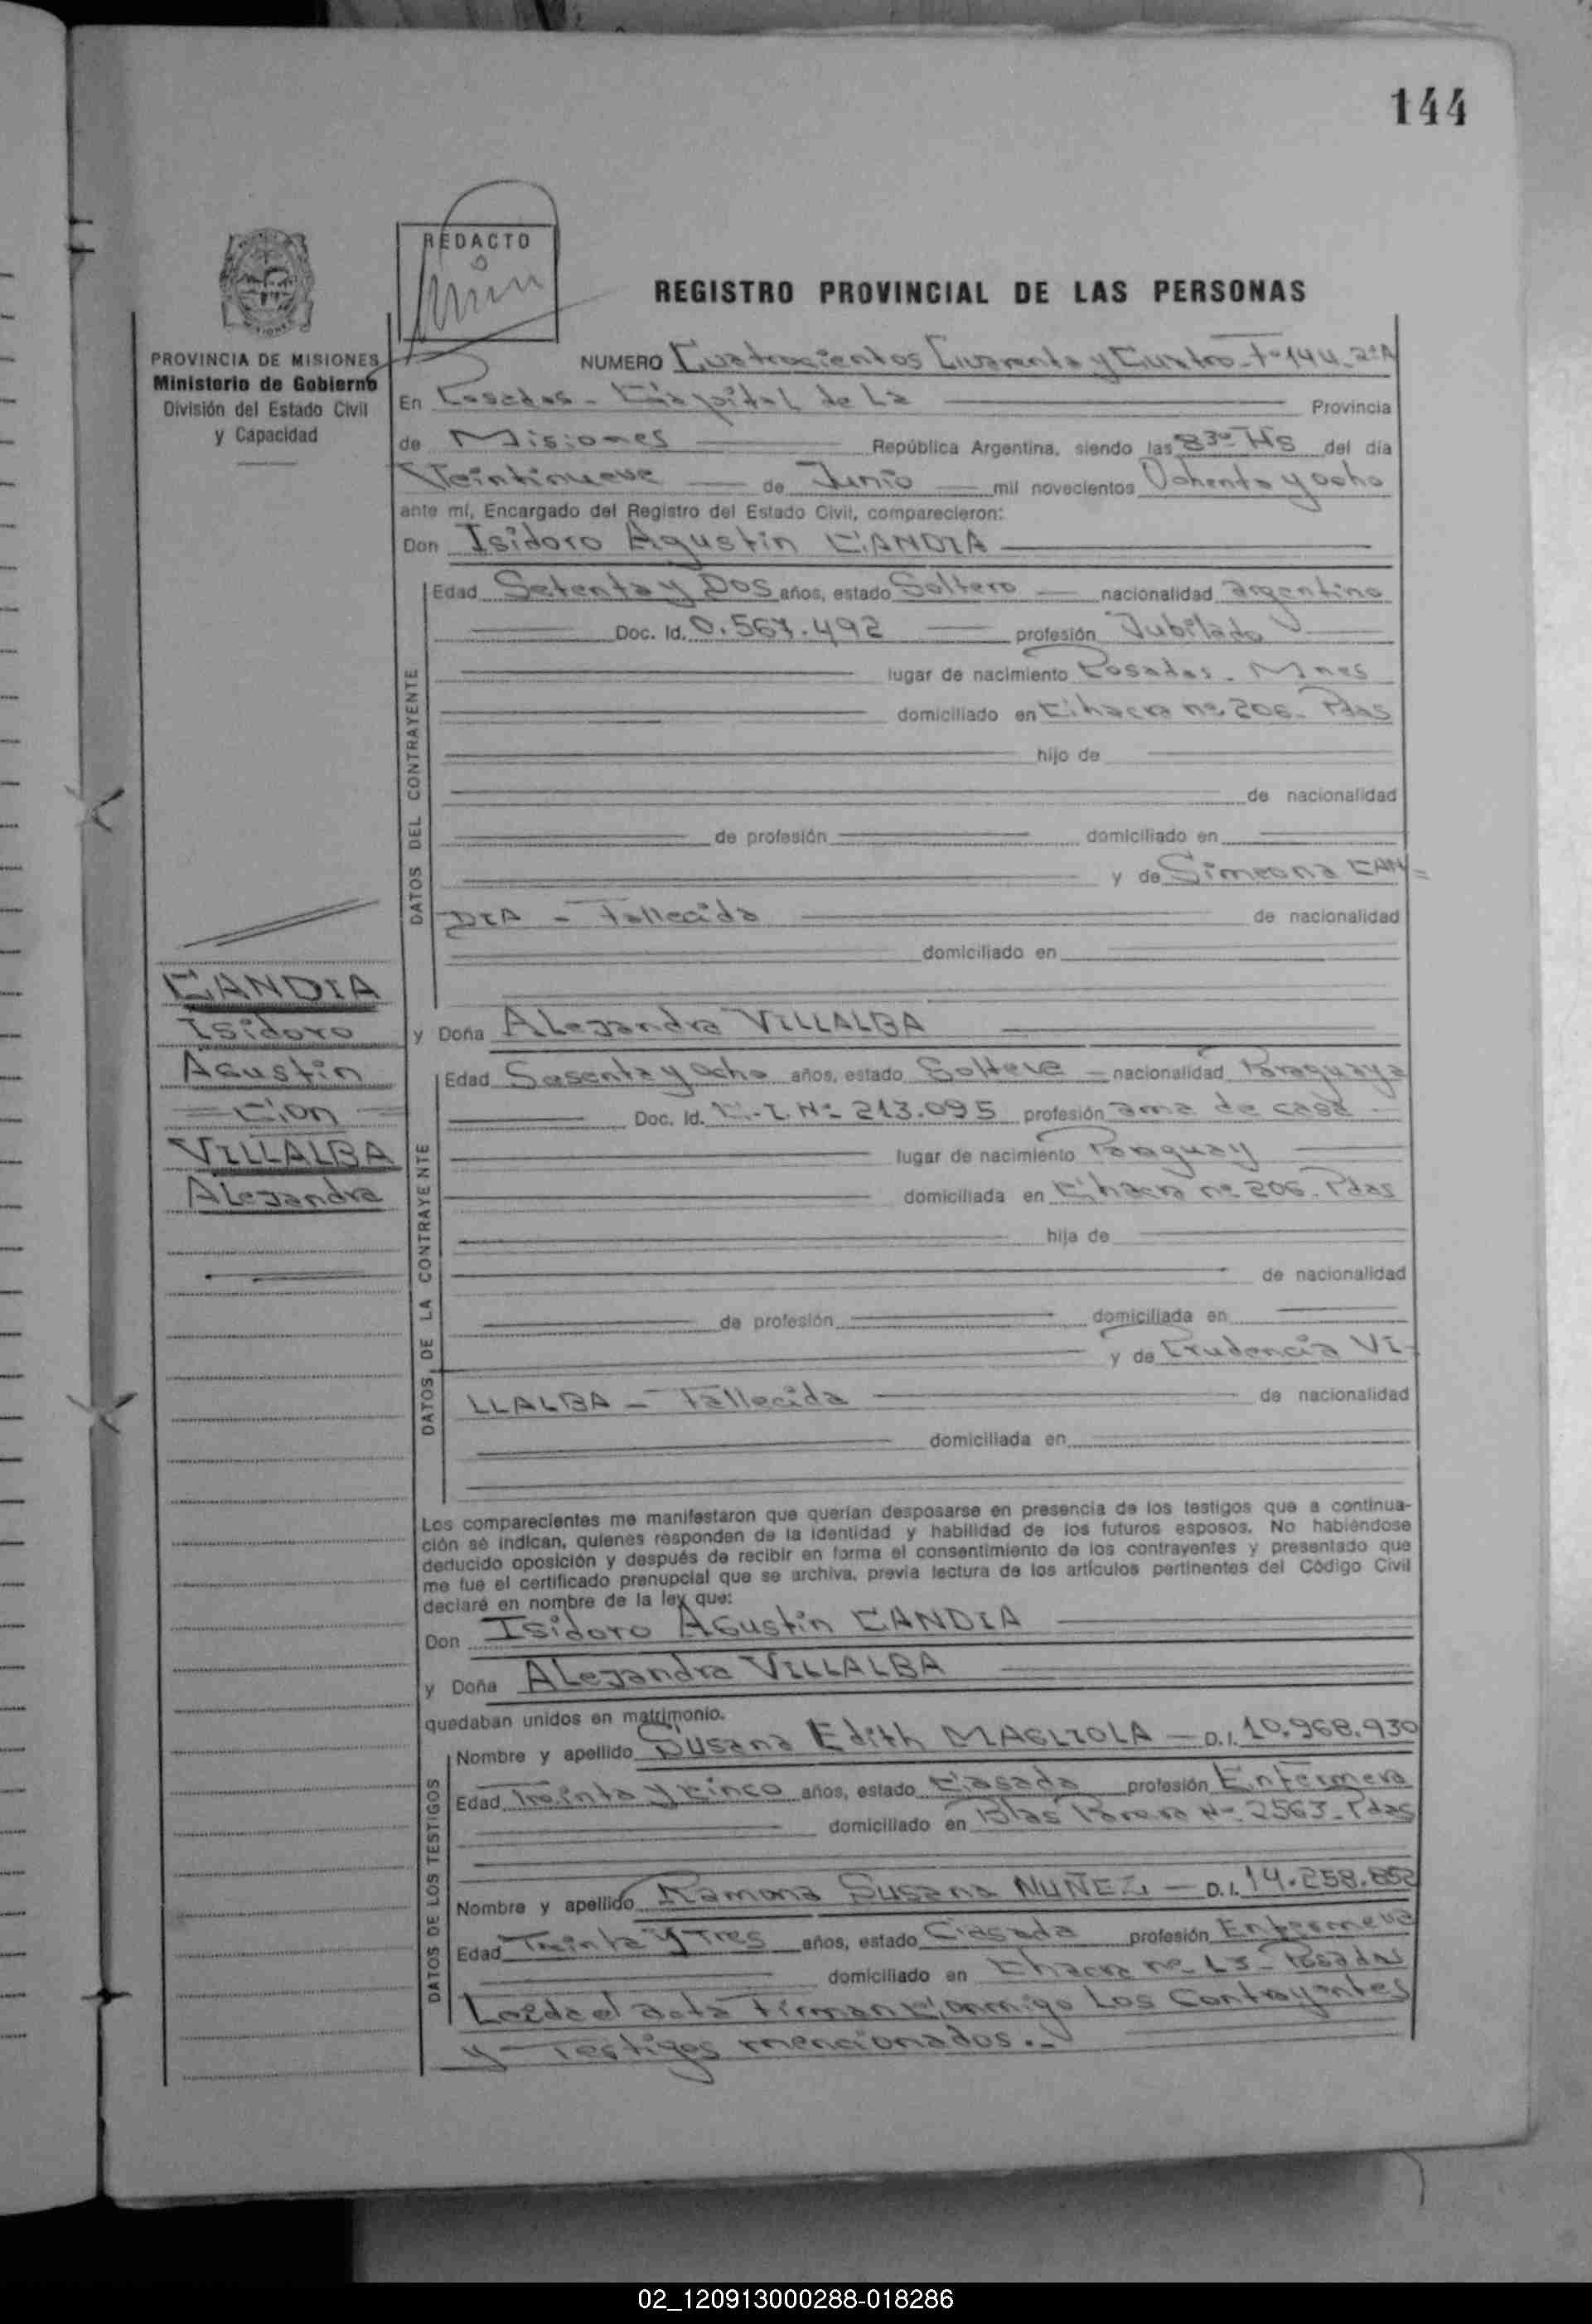 144
REDACTO
REGISTRO PROVINCIAL DE LAS PERSONAS
PROVINCIA DE MISIONES
Ministerio de Gobierno
División del Estado Civil
y Capacidad
NUMERO Cuatrocientos Cuarenta y Cuatro - Fº 144 - 2ºA
En Posadas - Capital de La Provincia
de Misiones República Argentina, siendo las 8 30 Hs del día
Veintinueve de Junio mil novecientos Ochenta y ocho
ante mí, Encargado del Registro del Estado Civil, comparecieron:
Don Isidoro Agustin CANDIA
DATOS DEL CONTRAYENTE
Edad Setenta y Dos años, estado Soltero nacionalidad argentino
Doc. Id. 0.567.492 profesión Jubilado
lugar de nacimiento Posadas - Mnes
domiciliado en Chacra nº 206 - Pdas
hijo de
de nacionalidad
de profesión domiciliado en
y de Simeona CAN=
DIA - Fallecida de nacionalidad
domiciliado en
CANDIA
Isidoro
Agustin
= Con =
VILLALBA
Alejandra
y Doña Alejandra VILLALBA
DATOS DE LA CONTRAYENTE
Edad Sesenta y ocho años, estado Soltera nacionalidad Paraguaya
Doc. Id. C.I. Nº 213.095 profesión ama de casa
lugar de nacimiento Paraguay
domiciliada en Chacra nº 206 - Pdas
hija de
de nacionalidad
de profesión domiciliada en
y de Prudencia VI-
LLALBA - Fallecida de nacionalidad
domiciliada en
Los comparecientes me manifestaron que querían desposarse en presencia de los testigos que a continua-
ción se indican, quienes responden de la identidad y habilidad de los futuros esposos. No habiéndose
deducido oposición y después de recibir en forma el consentimiento de los contrayentes y presentado que
me fue el certificado prenupcial que se archiva, previa lectura de los artículos pertinentes del Código Civil
declaré en nombre de la ley que:
Don Isidoro Agustin CANDIA
y Doña Alejandra VILLALBA
quedaban unidos en matrimonio.
DATOS DE LOS TESTIGOS
Nombre y apellido Susana Edith MAGLIOLA - D.I. 10.968.930
Edad Treinta y Cinco años, estado Casada profesión Enfermera
domiciliado en Blas Parera Nº 2563 - Pdas
Nombre y apellido Ramona Susana NUÑEZ - D.I. 14.258.852
Edad Treinta y Tres años, estado Casada profesión Enfermera
domiciliado en Chacra nº Posadas
Leida el acta Firman Conmigo Los Contrayentes
y Testigos mencionados.-
02_120913000288-018286